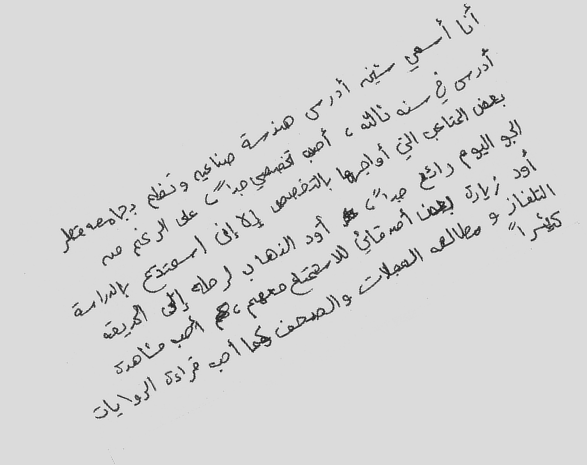 أنا أسمي شيخه أدرس هندسة صناعيه ونظم بجامعه قطر
أدرس في سنه ثالثه ، أحب تخصصي جداً ، على الرغم من
بعض المتاعب التي أواجهها بالتخصص إلا إنى استمتع بالدراسة
الجو اليوم رائع جداً ، أود الذهاب لرحله إلى الحديقه
أود زيارة بعض أصدقائي للاستمتاع معهم ، أحب مشاهدة
التلفاز و مطالعه المجلات والصحف كما أحب قراءة الروايات
كثيراً